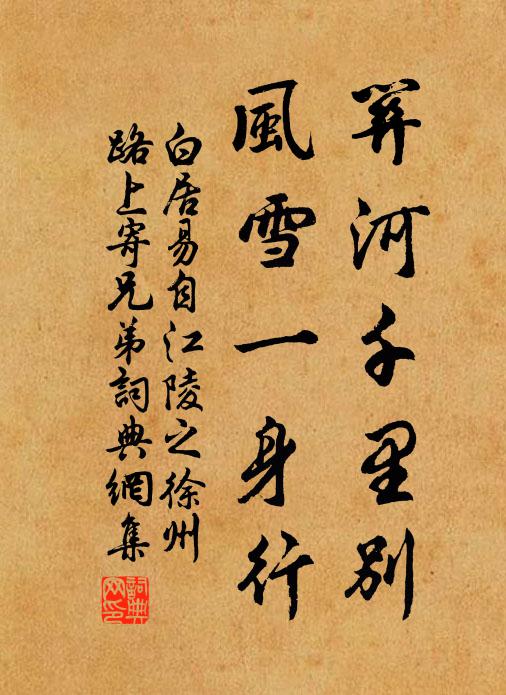 關河千里別
風雪一身行
白居易自江陵之徐州
路上寄兄弟詞典網集
詞典
网印